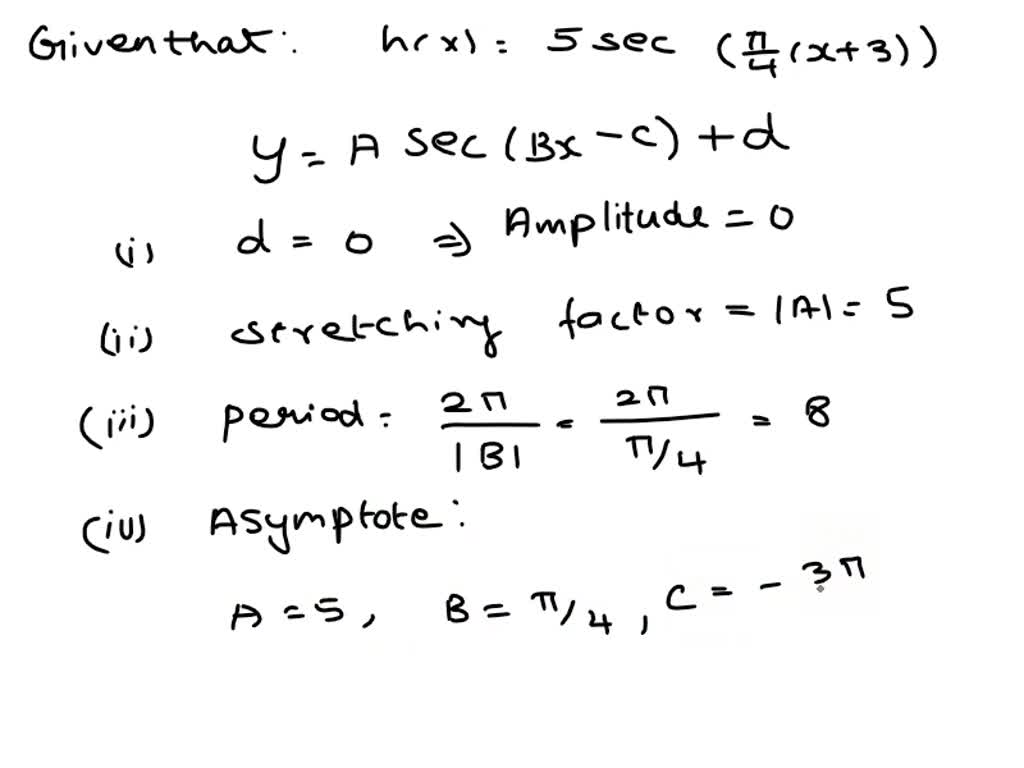 Given that: h(x) = 5 sec (π/4 (x+3))
y = A sec (Bx - c) + d
(i) d = 0 ⇒ Amplitude = 0
(ii) stretching factor = |A| = 5
(iii) period = 2π/|B| = 2π/(π/4) = 8
(iv) Asymptote:
A = 5, B = π/4, C = - 3π